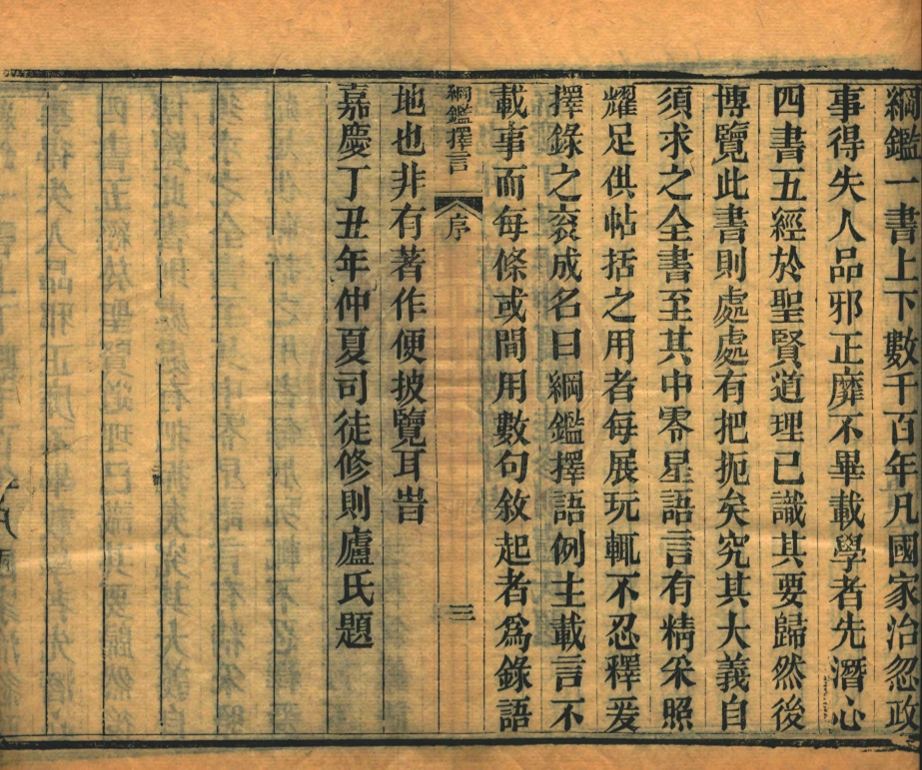 綱鑑一書上下數千百年凡國家治忽政
事得失人品邪正靡不畢載學者先潛心
四書五經於聖賢道理已識其要歸然後
博覽此書則處處有把扼矣究其大義自
須求之全書至其中零星語言有精采照
耀足供帖括之用者每展玩輒不忍釋爰
擇錄之裒成名曰綱鑑擇語例主載言不
載事而每條或間用數句敘起者爲錄語
綱鑑擇言 序 三
地也非有著作便披覽耳旹
嘉慶丁丑年仲夏司徒修則廬氏題